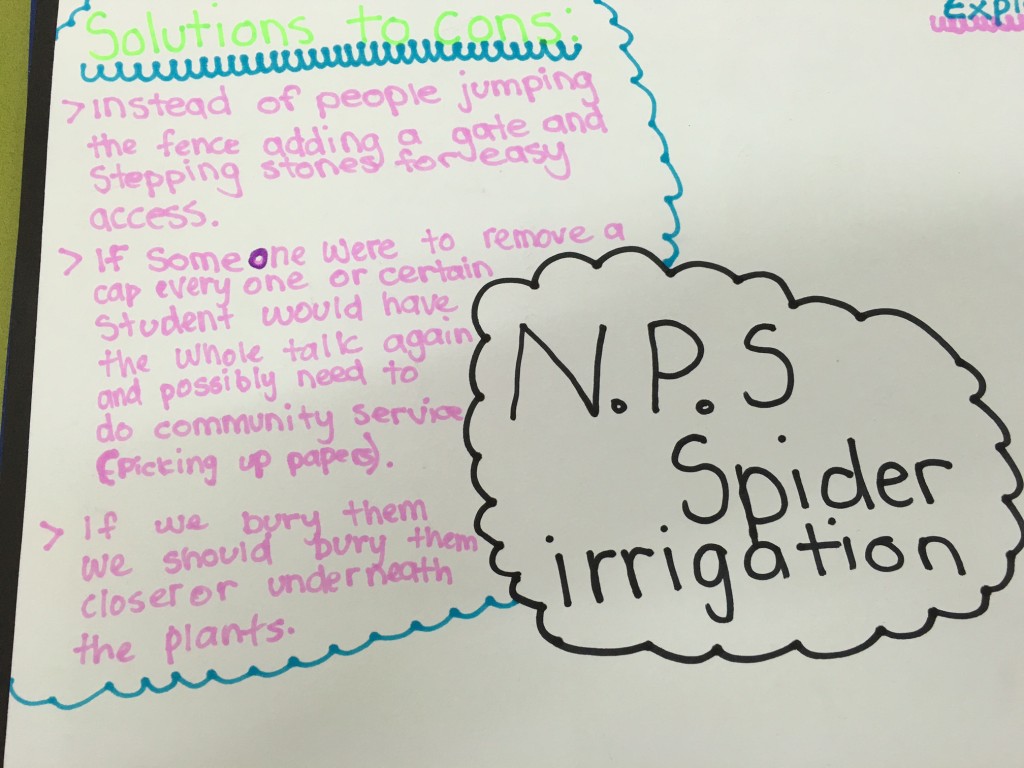 Solutions to cons:
> instead of people jumping
the fence adding a gate and
stepping stones for easy
access.
> If someone were to remove a
cap every one or certain
student would have
the whole talk again
and possibly need to
do community service
(picking up papers).
> If we bury them
we should bury them
closer or underneath
the plants.
N.P.S
Spider
irrigation